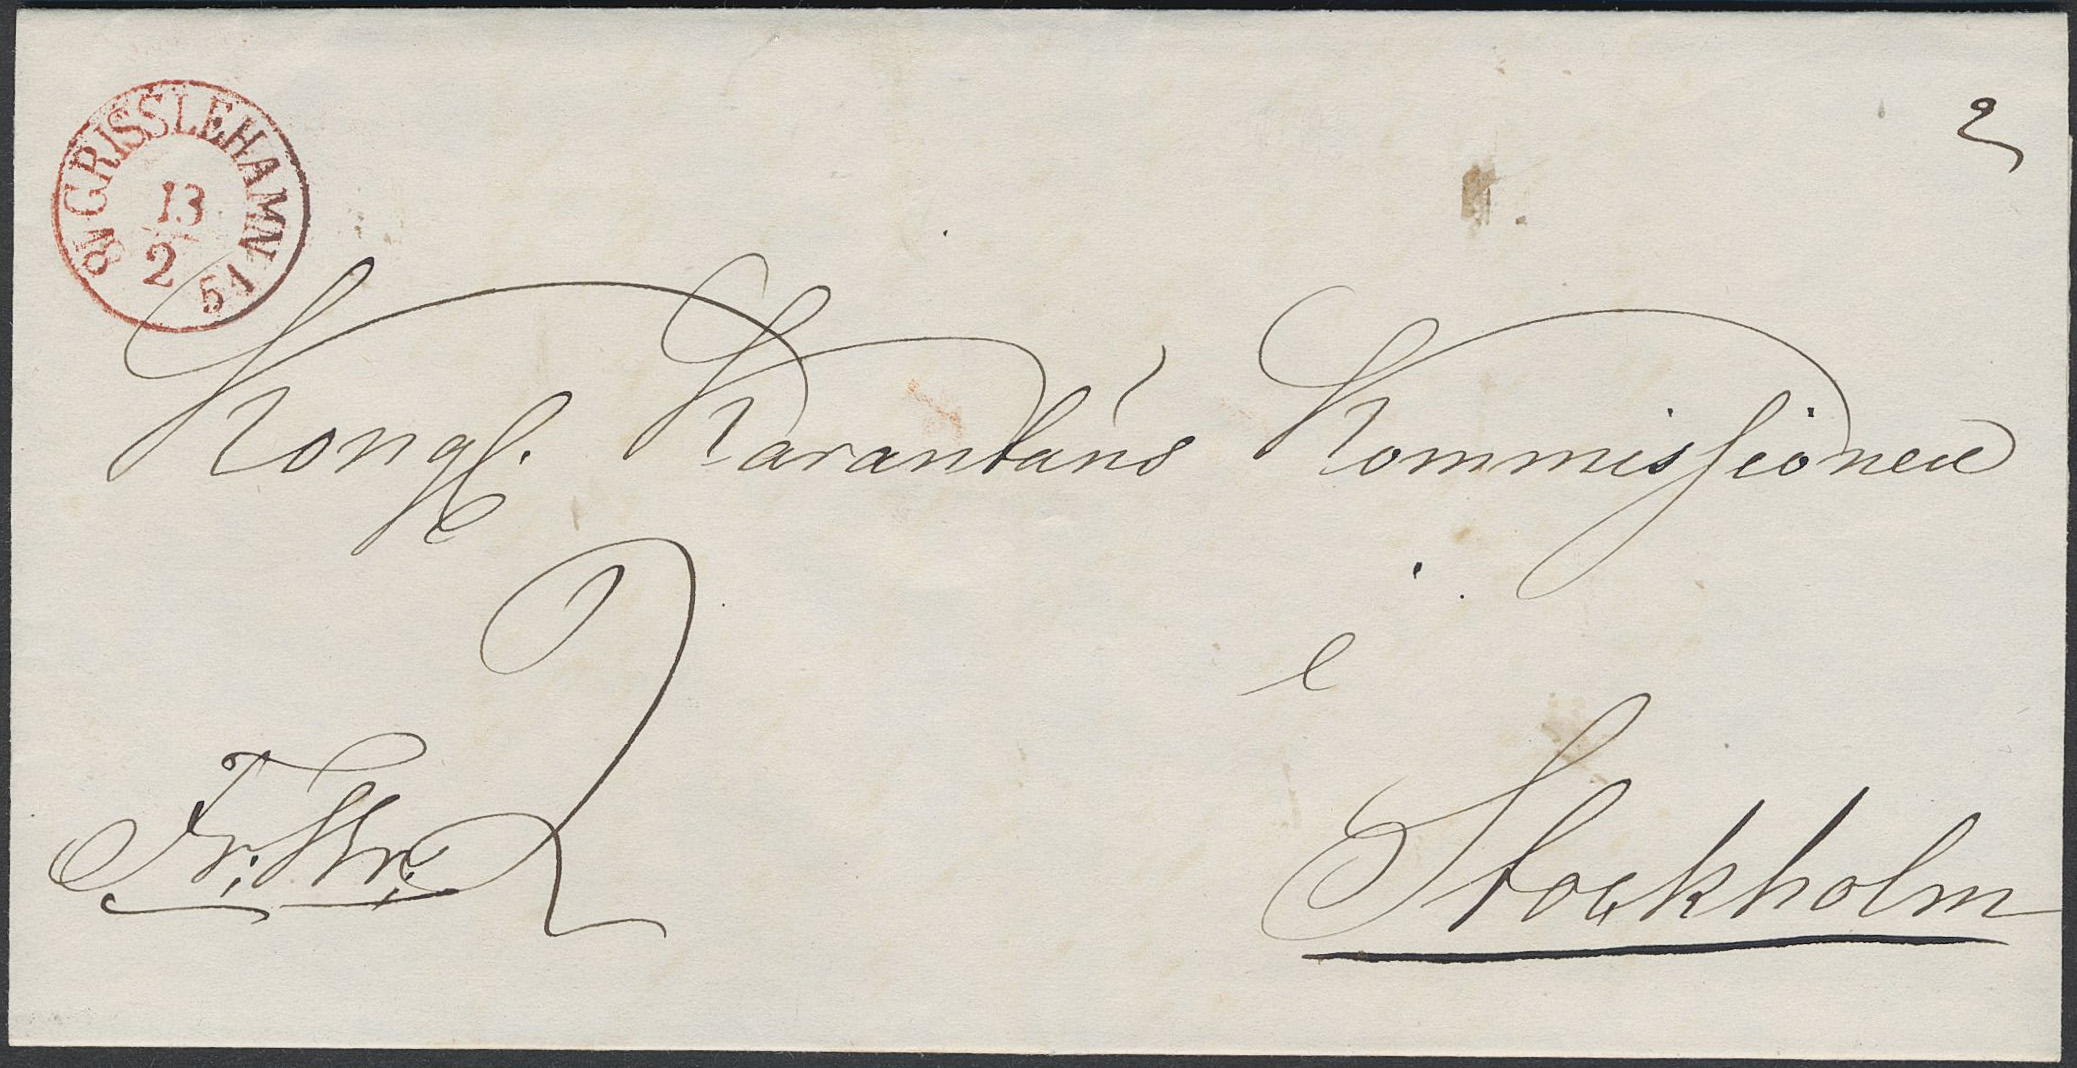 GRISSLEHAMN
13
2
18 51
2
Kongl. Karantäns Kommissionen
i
Stockholm
Fr: Br: 2